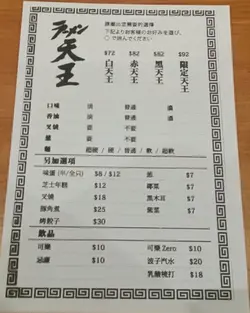 ラーメン
天王
請圈出您需要的選擇
下記よりお客様のお好みを選び、
○で囲んでください
$72 $82 $82 $92
白天王 赤天王 黑天王 限定天王
口味 淡 普通 濃
香油 淡 普通 濃
叉燒 要 不要
蔥 要 不要
麵 超硬 / 硬 / 普通 / 軟 / 超軟
另加選項
味蛋 (半/全只) $8 / $12
芝士年糕 $12
叉燒 $18
豚角煮 $25
烤餃子 $30
蔥 $7
椰菜 $7
黑木耳 $7
紫菜 $7
飲品
可樂 $10
$10
可樂 Zero $10
波子汽水 $20
乳酸梳打 $18